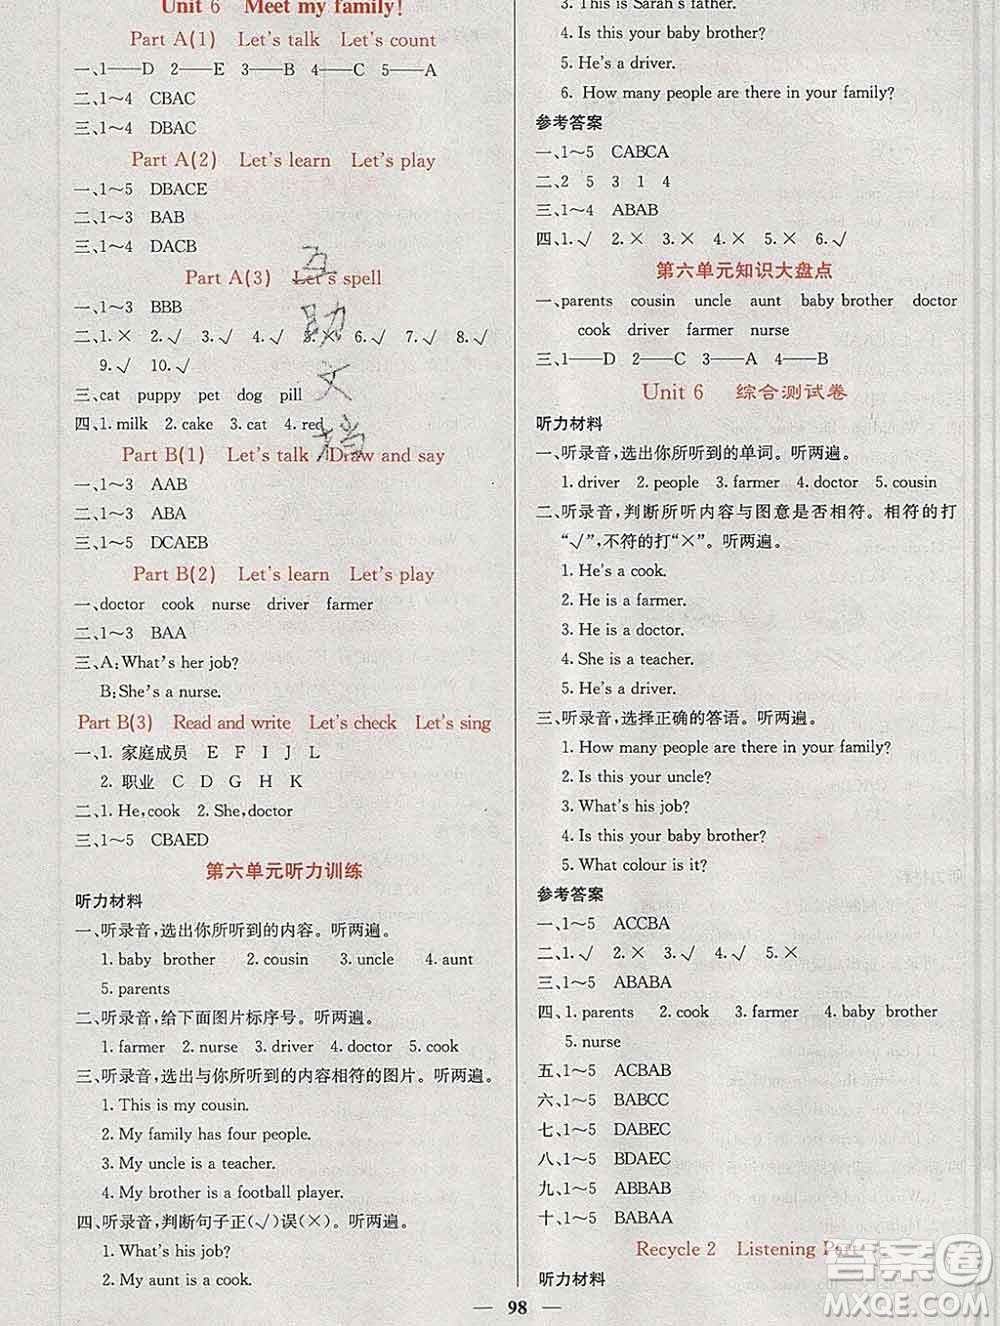 Unit 6 Meet my family!
Part A(1) Let's talk Let's count
一、1——D 2——E 3——B 4——C 5——A
二、1～4 CBAC
三、1～4 DBAC
Part A(2) Let's learn Let's play
一、1～5 DBACE
二、1～3 BAB
三、1～4 DACB
Part A(3) Let's spell
一、1～3 BBB
二、1.× 2.√ 3.√ 4.√ 5.× 6.√ 7.√ 8.√
9.√ 10.√
三、cat puppy pet dog pill
四、1. milk 2. cake 3. cat 4. red
Part B(1) Let's talk Draw and say
一、1～3 AAB
二、1～3 ABA
三、1～5 DCAEB
Part B(2) Let's learn Let's play
一、doctor cook nurse driver farmer
二、1～3 BAA
三、A:What's her job?
B:She's a nurse.
Part B(3) Read and write Let's check Let's sing
一、1. 家庭成员 E F I J L
2. 职业 C D G H K
二、1. He,cook 2. She,doctor
三、1～5 CBAED
第六单元听力训练
听力材料
一、听录音,选出你所听到的内容。听两遍。
1. baby brother 2. cousin 3. uncle 4. aunt
5. parents
二、听录音,给下面图片标序号。听两遍。
1. farmer 2. nurse 3. driver 4. doctor 5. cook
三、听录音,选出与你所听到的内容相符的图片。听两遍。
1. This is my cousin.
2. My family has four people.
3. My uncle is a teacher.
4. My brother is a football player.
四、听录音,判断句子正(√)误(×)。听两遍。
1. What's his job?
2. My aunt is a cook.
3. This is Sarah's father.
4. Is this your baby brother?
5. He's a driver.
6. How many people are there in your family?
参考答案
一、1～5 CABCA
二、2 5 3 1 4
三、1～4 ABAB
四、1.√ 2.× 3.√ 4.× 5.× 6.√
第六单元知识大盘点
一、parents cousin uncle aunt baby brother doctor
cook driver farmer nurse
三、1——D 2——C 3——A 4——B
Unit 6 综合测试卷
听力材料
一、听录音,选出你所听到的单词。听两遍。
1. driver 2. people 3. farmer 4. doctor 5. cousin
二、听录音,判断所听内容与图意是否相符。相符的打
“√”,不符的打“×”。听两遍。
1. He's a cook.
2. He is a farmer.
3. He is a doctor.
4. She is a teacher.
5. He's a driver.
三、听录音,选择正确的答语。听两遍。
1. How many people are there in your family?
2. Is this your uncle?
3. What's his job?
4. Is this your baby brother?
5. What colour is it?
参考答案
一、1～5 ACCBA
二、1.√ 2.× 3.√ 4.√ 5.×
三、1～5 ABABA
四、1. parents 2. cook 3. farmer 4. baby brother
5. nurse
五、1～5 ACBAB
六、1～5 BABCC
七、1～5 DABEC
八、1～5 BDAEC
九、1～5 ABBAB
十、1～5 BABAA
Recycle 2 Listening Part
听力材料
— 98 —
互助文档
答案圈
MXQE.COM